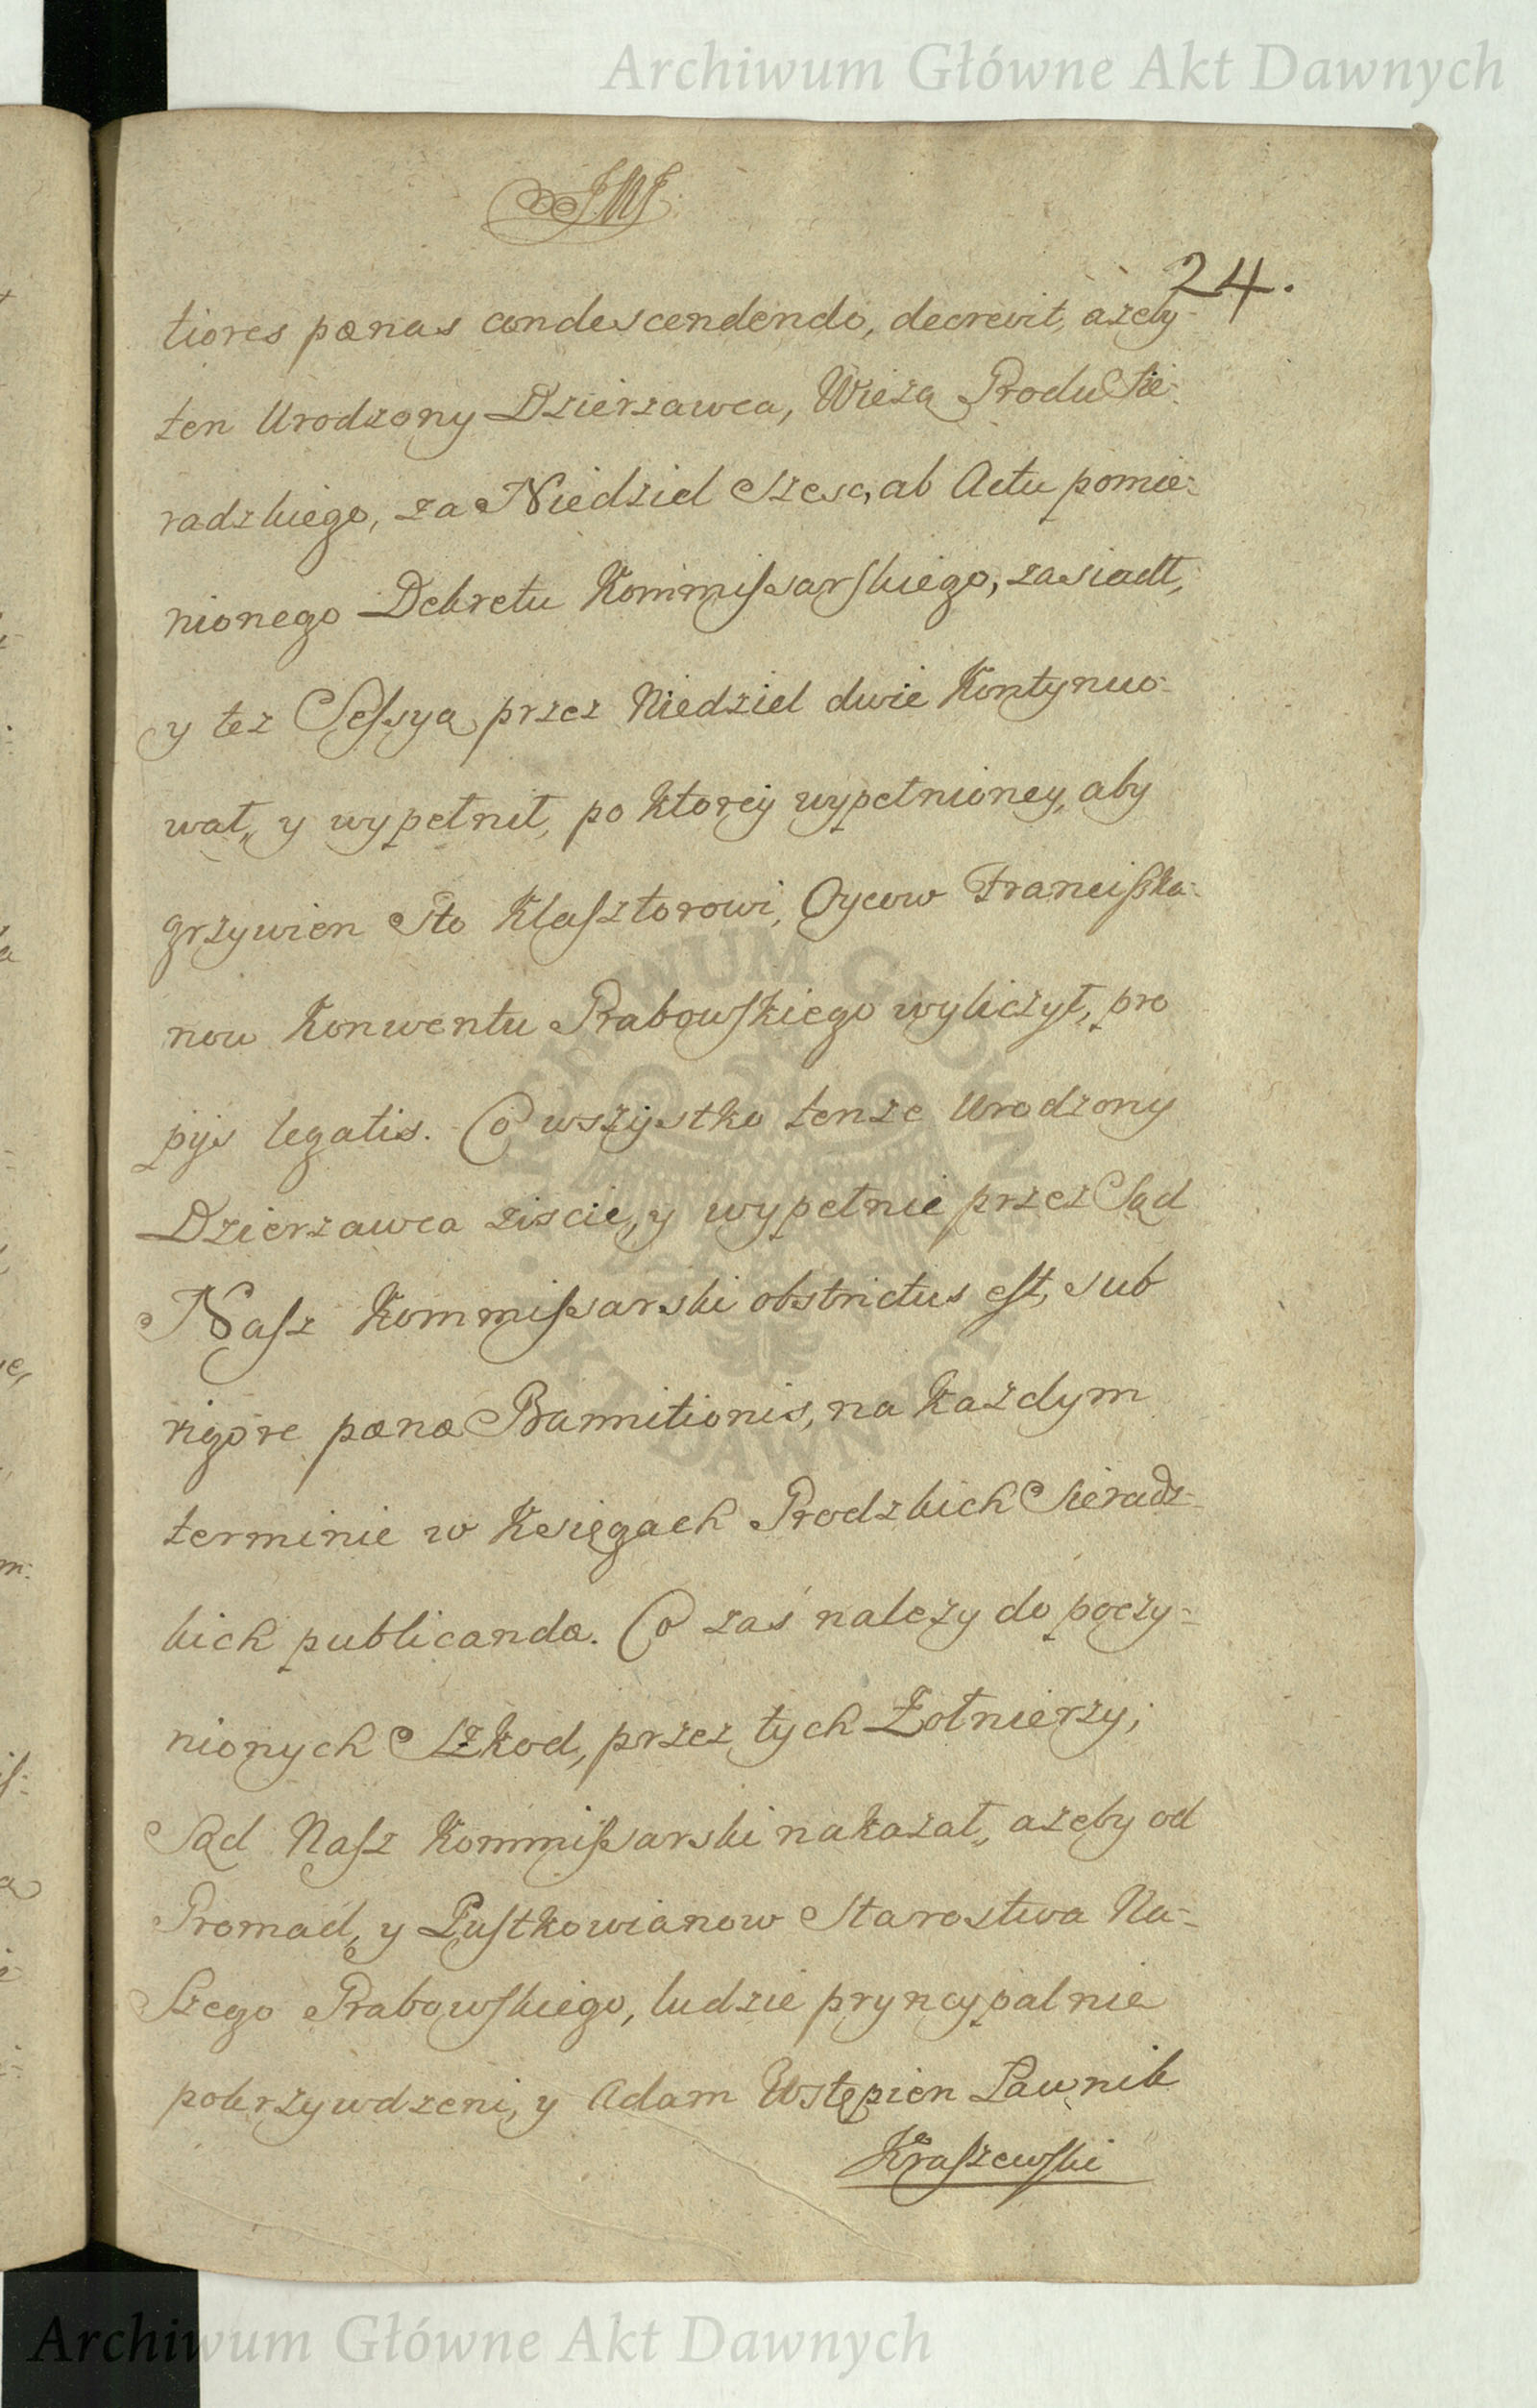 Archiwum Główne Akt Dawnych
JMJ.
24.
tiores pœnas condescendendo, decrevit, ażeby
ten Urodzony Dzierzawca, Wieżą Grodu Sie-
radzkiego, za Niedziel szesc, ab Actu pomie-
nionego Dekretu Kommissarskiego, zasiadł,
y tez Sessyą przez Niedziel dwie Kontynuo-
wał, y wypełnił, po ktorey wypełnioney, aby
grzywien Sto Klasztorowi, Oycow Franciszka-
now Konwentu Grabowskiego wyliczył, pro
pys legatis. Co wszystko tenze Urodzony
Dzierzawca ziscic, y wypełnic przez Sąd
Nasz Kommissarski obstrictus est, sub
rigore pœnæ Bannitionis, na każdym
terminie w Księgach Grodzkich Sieradz-
kich publicandæ. Co zaś należy do poczy-
nionych Szkod, przez tych Żołnierzy;
Sąd Nasz Kommissarski nakazał, ażeby od
Gromad, y Pustkowianow Starostwa Na-
szego Grabowskiego, ludzie pryncypalnie
pokrzywdzeni, y Adam Wstępien Ławnik
Kraszewski
ARCHIWUM GŁÓWNE AKT DAWNYCH
Archiwum Główne Akt Dawnych